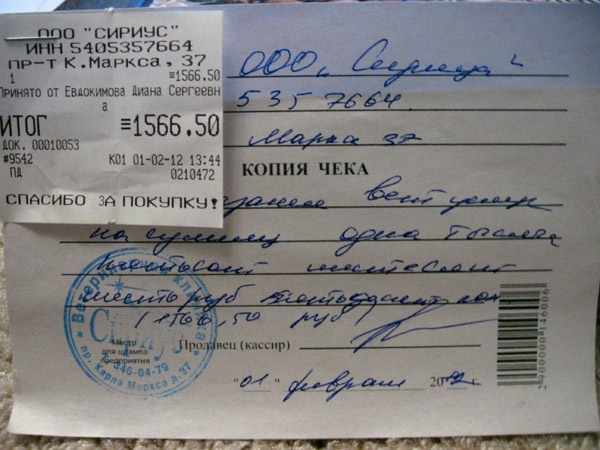 ООО "СИРИУС"
ИНН 5405357664
ПР-Т К.Маркса, 37
1 ≡1566.50
Принято от Евдокимова Диана Сергеевн
а
ИТОГ ≡1566.50
ДОК. 00010053
#9542 К01 01-02-12 13:44
ПД 0210472
СПАСИБО ЗА ПОКУПКУ!
ООО "Сириус"
5357664.
Маркса 37
КОПИЯ ЧЕКА
вет услуг
на сумму одна тысяча
пятьсот шестьдесят
шесть руб пятьдесят коп
(1566,50 руб)
Продавец (кассир)
Место
для штампа
предприятия
Ветеринарная клиника
Сириус
346-04-79
пр. Карла Маркса д.37
"01" февраля 2012
2000000146006